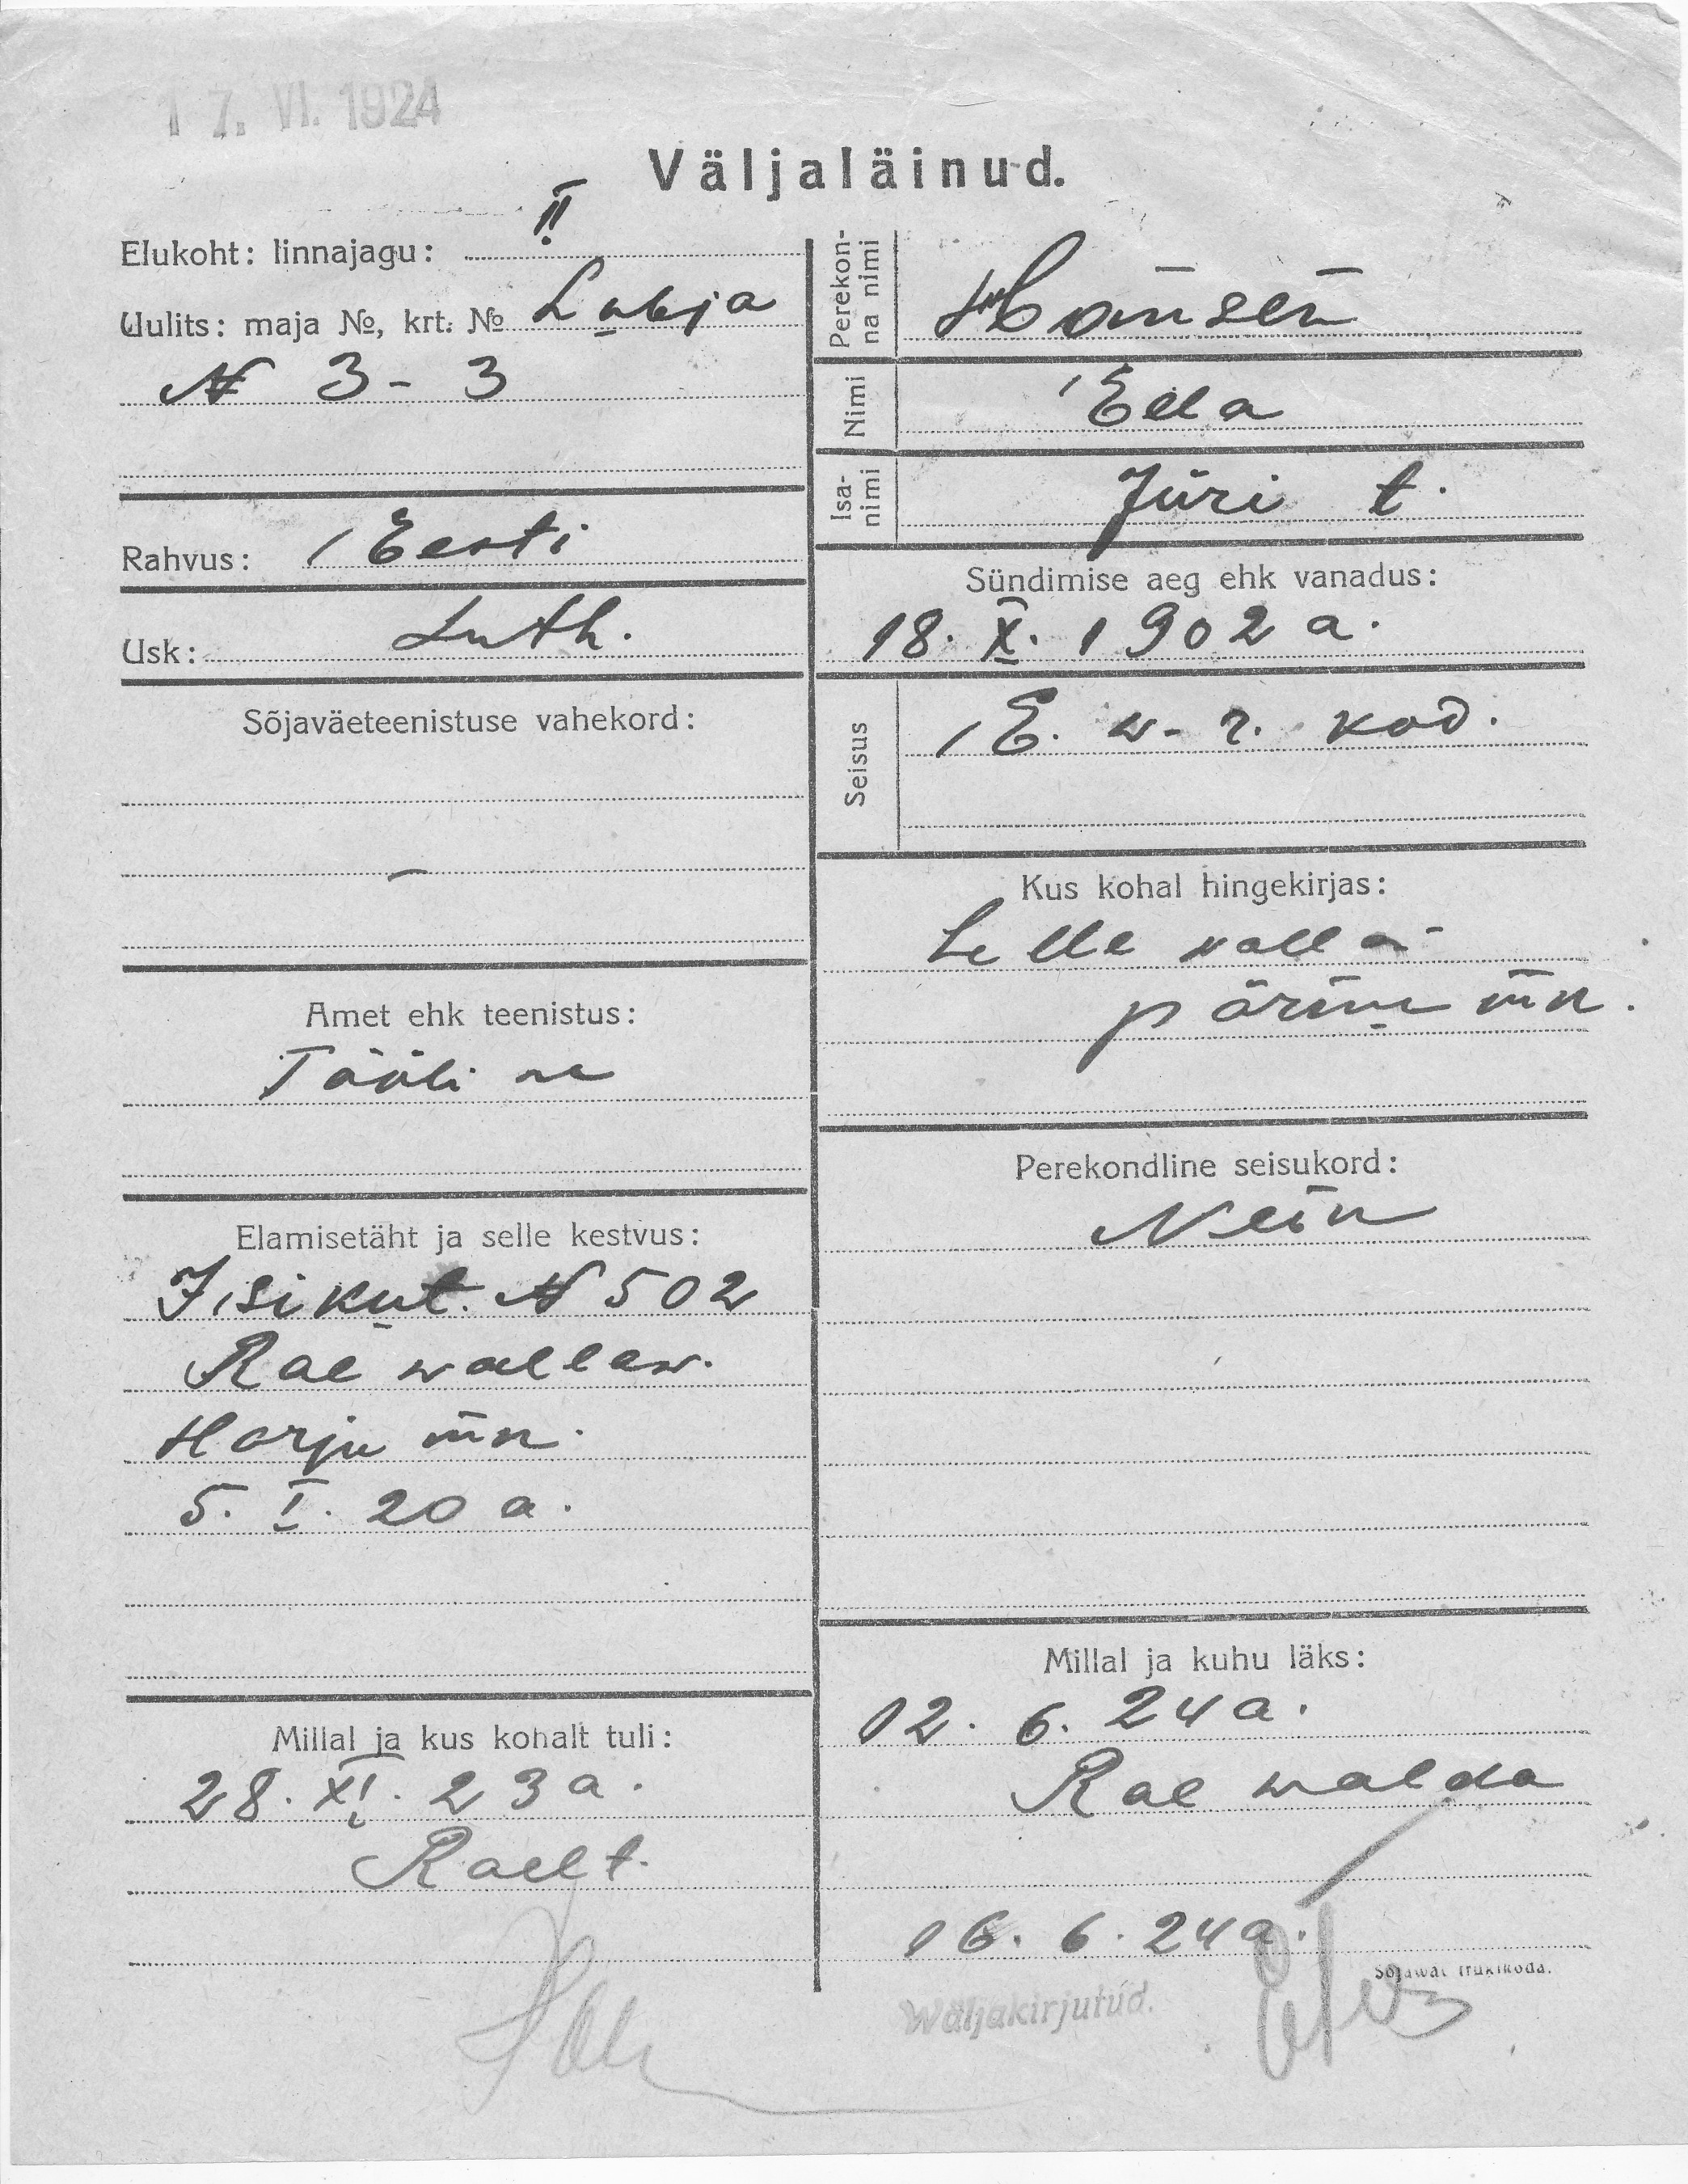 17. VI. 1924
Väljaläinud.
Elukoht: linnajagu: II
Uulits: maja №, krt. № Lubja
N 3 - 3
Rahvus: Eesti
Usk: Luth.
Sõjaväeteenistuse vahekord:
–
Amet ehk teenistus:
Tööline
Elamisetäht ja selle kestvus:
Isikut. N 502
Rae wallaw.
Harju m̄n.
5. I. 20 a.
Millal ja kus kohalt tuli:
28. XI. 23 a.
Raelt.
Perekon-
na nimi
Hansen
Nimi Ella
Isa-
nimi
Jüri t.
Sündimise aeg ehk vanadus:
18. X. 1902 a.
Seisus E. w. r. kod.
Kus kohal hingekirjas:
Lelle walla
Pärnu m̄n.
Perekondline seisukord:
Nein
Millal ja kuhu läks:
12. 6. 24 a.
Rae walda
16. 6. 24 a.
Sõjawäe trükikoda.
Wäljakirjutud.